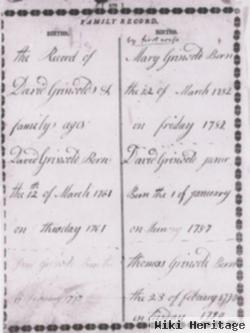 FAMILY RECORD.
BIRTHS.
the Record of
David Griswold's &
family's ages
David Griswold Born
the 12th of March 1761
on thusday 1761
BIRTHS.
by first wife
Mary Griswold Born
the 22 of March 1782
on friday 1782
David Griswold junr
Born the 1 of january
on 1787
thomas Griswold Born
the 23 of febuary
on friday
Wiki Heritage